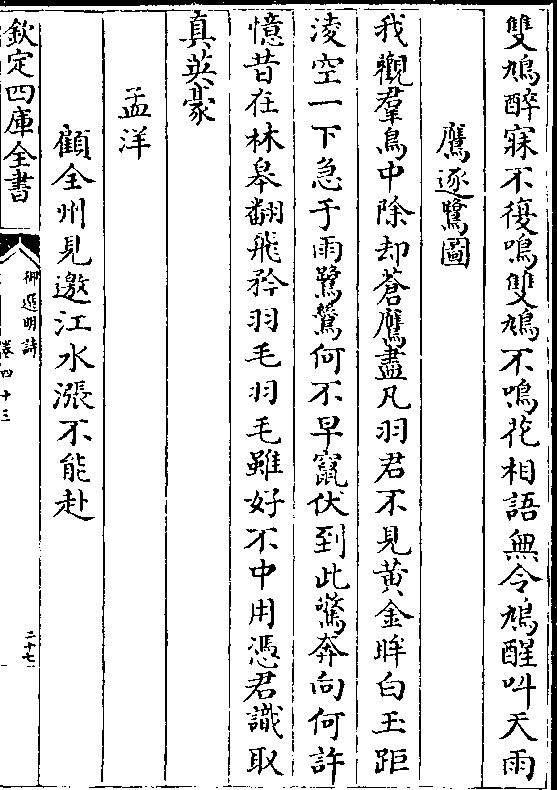 雙鳩醉寐不復鳴雙鳩不鳴花相語無令鳩醒呌天雨
鷹逐鷺圖
我觀羣鳥中除却蒼鷹盡凡羽君不見黄金眸白玉距
淩空一下急于雨鷺鷥何不早竄伏到此驚奔向何許
憶昔在林皋翻飛矜羽毛羽毛雖好不中用憑君識取
真英豪
孟洋
顧全州見邀江水漲不能赴
欽定四庫全書
御選明詩
卷四十三
二十七